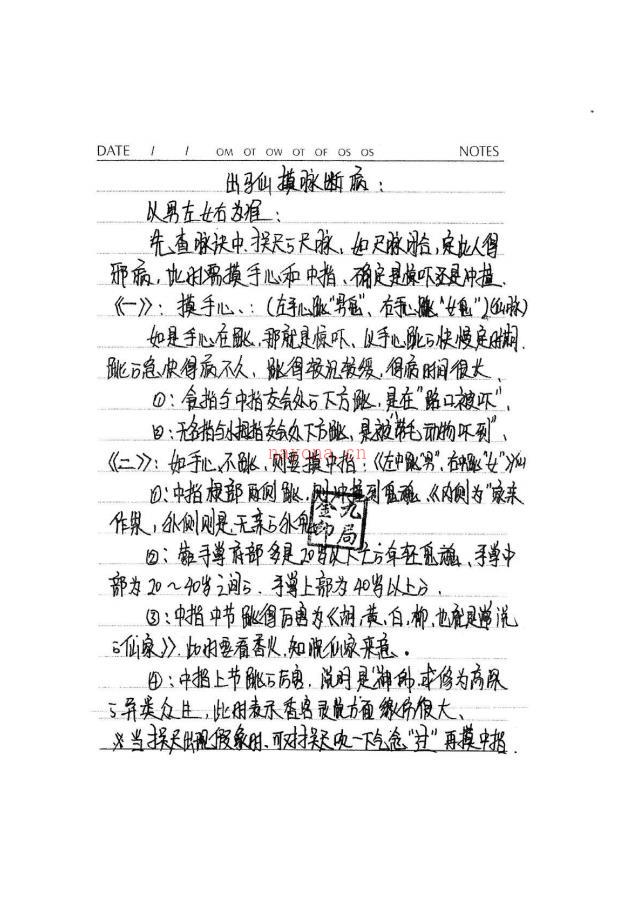 DATE / / OM OT OW OT OF OS OS NOTES
出马仙摸脉断病：
以男左女右为准：
先查脉诀中、尺脉、如尺脉闭合，定此人得
邪病，此时需摸手心和中指、确定是惊吓还是冲撞.
《一》：摸手心、：(左手心跳"男鬼"、右手心跳"女鬼")(仙脉)
如是手心在跳，那就是惊吓、以手心跳与快慢定时间.
跳与急快得病不久、跳得较缓，得病时间很久.
①：食指与中指交会处与下方跳，是在"路口被吓"，
②：无名指与小拇指交会处下方跳，是被"带毛动物吓到"，
《二》：如手心不跳，则要摸中指：《左中跳"男"，右中跳"女"》
①：中指根部两侧跳，则冲撞到鬼魂、《内侧为"家亲
作祟，外侧则是无亲与外鬼
②：部多是20岁以下与年轻鬼魂、手掌中
部为20～40岁之间与. 手掌上部为40岁以上与.
③：中指中节跳得厉害为《胡，黄，白，柳，也就是常说
与仙家》. 此时要看香火，知晓仙家来意。
④：中指上节跳与厉害，说明是神、或修为高深
与异类众生，此时表示香客灵魂方面很大、
※当尺出现假象时，可对尺吹一下气念再摸中指.
金九
印局
nayona.cn